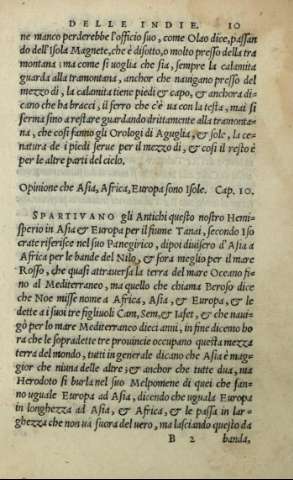 DELLE INDIE. 10
ne manco perderebbe l'officio suo, come Olao dice, passan
do dell'Isola Magnete, che è disotto, o molto presso della tra
montana: ma come si uoglia che sia, sempre la calamita
guarda alla tramontana, anchor che nauigano presso del
mezzo di, la calamita tiene piedi & capo, & anchora di-
cano che ha bracci, il ferro che c'è ua con la testa, mai si
ferma sino a restare guardando drittamente alla tramonta-
na, che cosi fanno gli Orologi di Aguglia, & sole, la ce-
natura de i piedi serue per il mezzo di, & cosi il resto è
per le altre parti del cielo.
Opinione che Asia, Africa, Europa sono Isole. Cap. 10.
SPARTIVANO gli Antichi questo nostro Hemi-
sperio in Asia & Europa per il fiume Tanai, secondo Iso
crate riferisce nel suo Panegirico, dipoi diuisero d'Asia a
Africa per le bande del Nilo, & fora meglio per il mare
Rosso, che quasi attrauersa la terra del mare Oceano fi-
no al Mediterraneo, ma quello che chiama Beroso dice
che Noe misse nome a Africa, Asia, & Europa, & le
dette a i suoi tre figliuoli Cam, Sem, & Iafet, & che naui-
gò per lo mare Mediterraneo dieci anni, in fine dicemo ho
ra che le sopradette tre prouincie occupano questa mezza
terra del mondo, tutti in generale dicano che Asia è mag-
gior che niuna delle altre; & anchor che tutte dua, ma
Herodoto si burla nel suo Melpomene di quei che fan-
no uguale Europa ad Asia, dicendo che uguala Europa
in longhezza ad Asia, & Africa, & le passa in lar-
ghezza che non ua fuora del uero, ma lasciando questo da
B 2 banda,